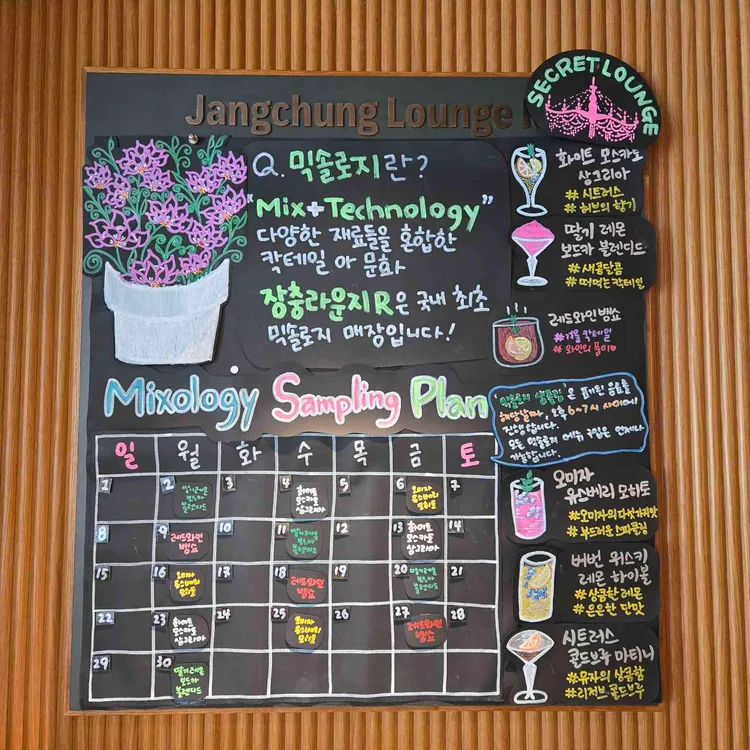 Jangchung Lounge
SECRET LOUNGE
Q. 믹솔로지란?
"Mix+Technology"
다양한 재료들을 혼합한
칵테일 아 문화
장충라운지R은 국내 최초
믹솔로지 매장입니다!
화이트 모스카토
상그리아
#시트러스
#허브의 향기
딸기 레몬
보드카 블렌디드
#새콤달콤
#떠먹는칵테일
레드와인뱅쇼
#겨울칵테일
#와인의 풍미♥
Mixology Sampling Plan
믹솔로지 샘플링은 표기된 음료를
해당날짜, 오후 6~7시 사이에
진행합니다.
모든 믹솔로지 메뉴 구입은 언제나
가능합니다.
일 월 화 수 목 금 토
1 2 3 4 5 6 7
딸기레몬
보드카
블렌디드
화이트
모스카토
상그리아
오미자
유스베리
모히토
8 9 10 11 12 13 14
레드와인
뱅쇼
딸기레몬
보드카
블렌디드
화이트
모스카토
상그리아
15 16 17 18 19 20 21
오미자
유스베리
모히토
레드와인
뱅쇼
딸기레몬
보드카
블렌디드
22 23 24 25 26 27 28
화이트
모스카토
상그리아
오미자
유스베리
모히토
레드와인
뱅쇼
29 30
딸기레몬
보드카
블렌디드
오미자
유스베리 모히토
#오미자의다섯가지맛
#부드러운스파클링
버번 위스키
레몬 하이볼
#상큼한레몬
#은은한 단맛
시트러스
콜드브루 마티니
#유자의상큼함
#리저브 콜드브루